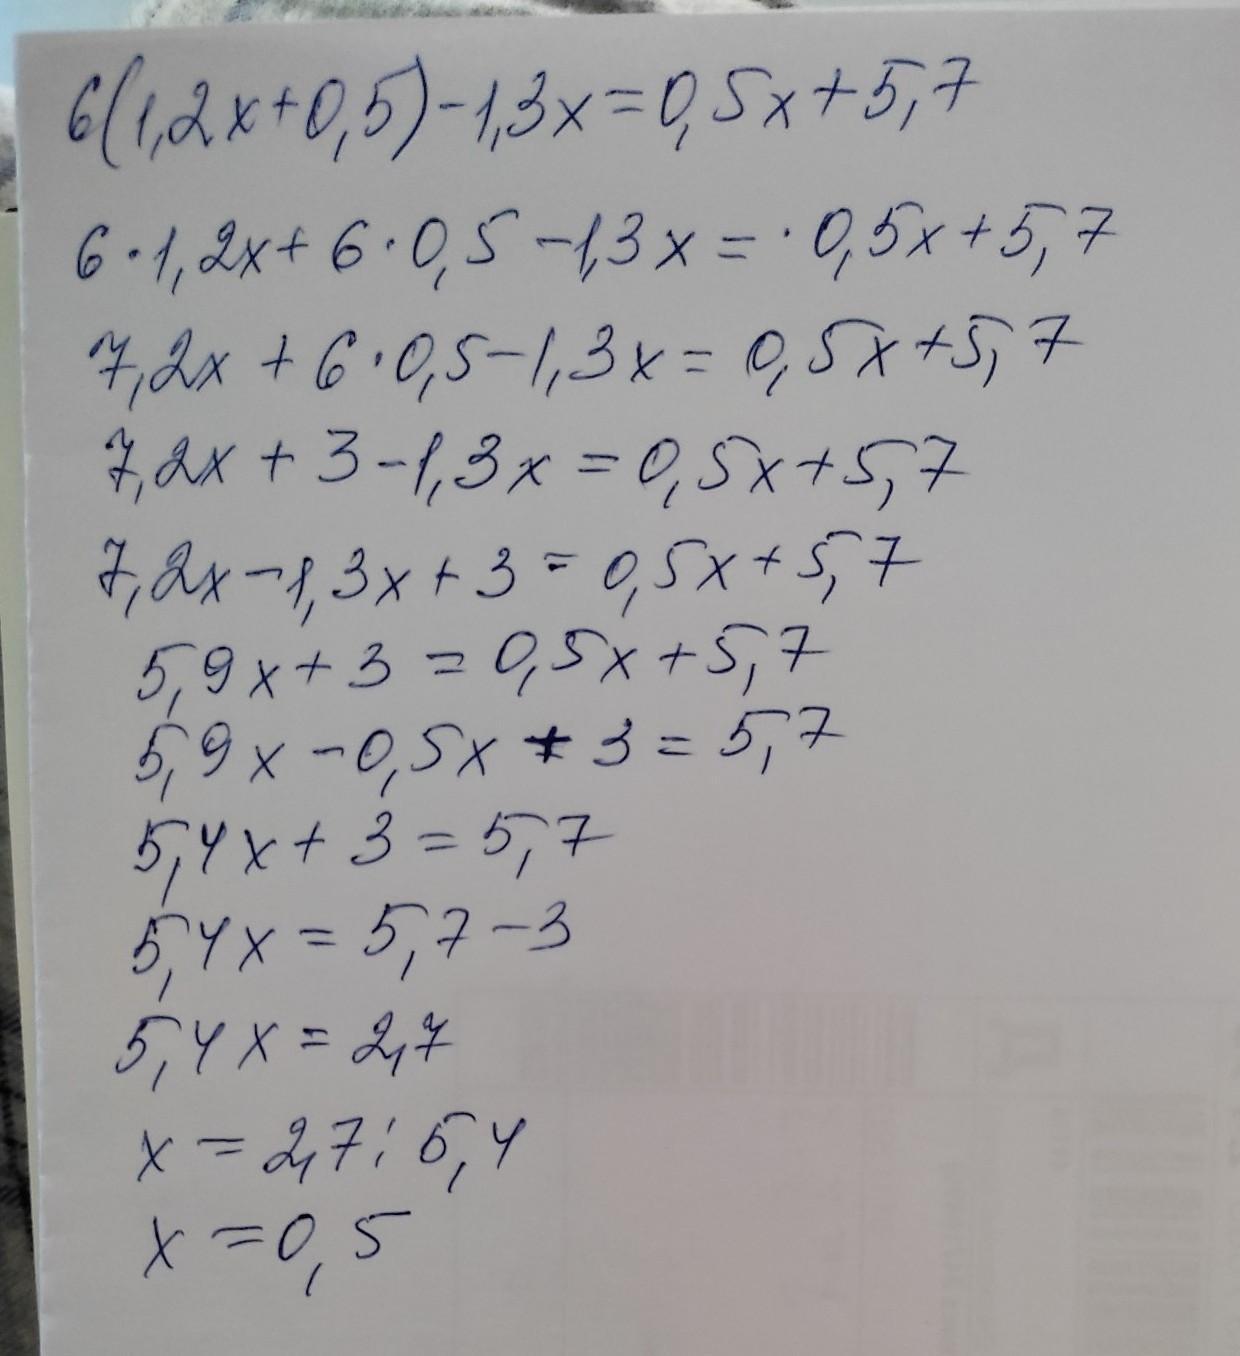 6(1,2x+0,5)-1,3x=0,5x+5,7
6·1,2x+6·0,5-1,3x=·0,5x+5,7
7,2x+6·0,5-1,3x=0,5x+5,7
7,2x+3-1,3x=0,5x+5,7
7,2x-1,3x+3=0,5x+5,7
5,9x+3=0,5x+5,7
5,9x-0,5x+3=5,7
5,4x+3=5,7
5,4x=5,7-3
5,4x=2,7
x=2,7:5,4
x=0,5